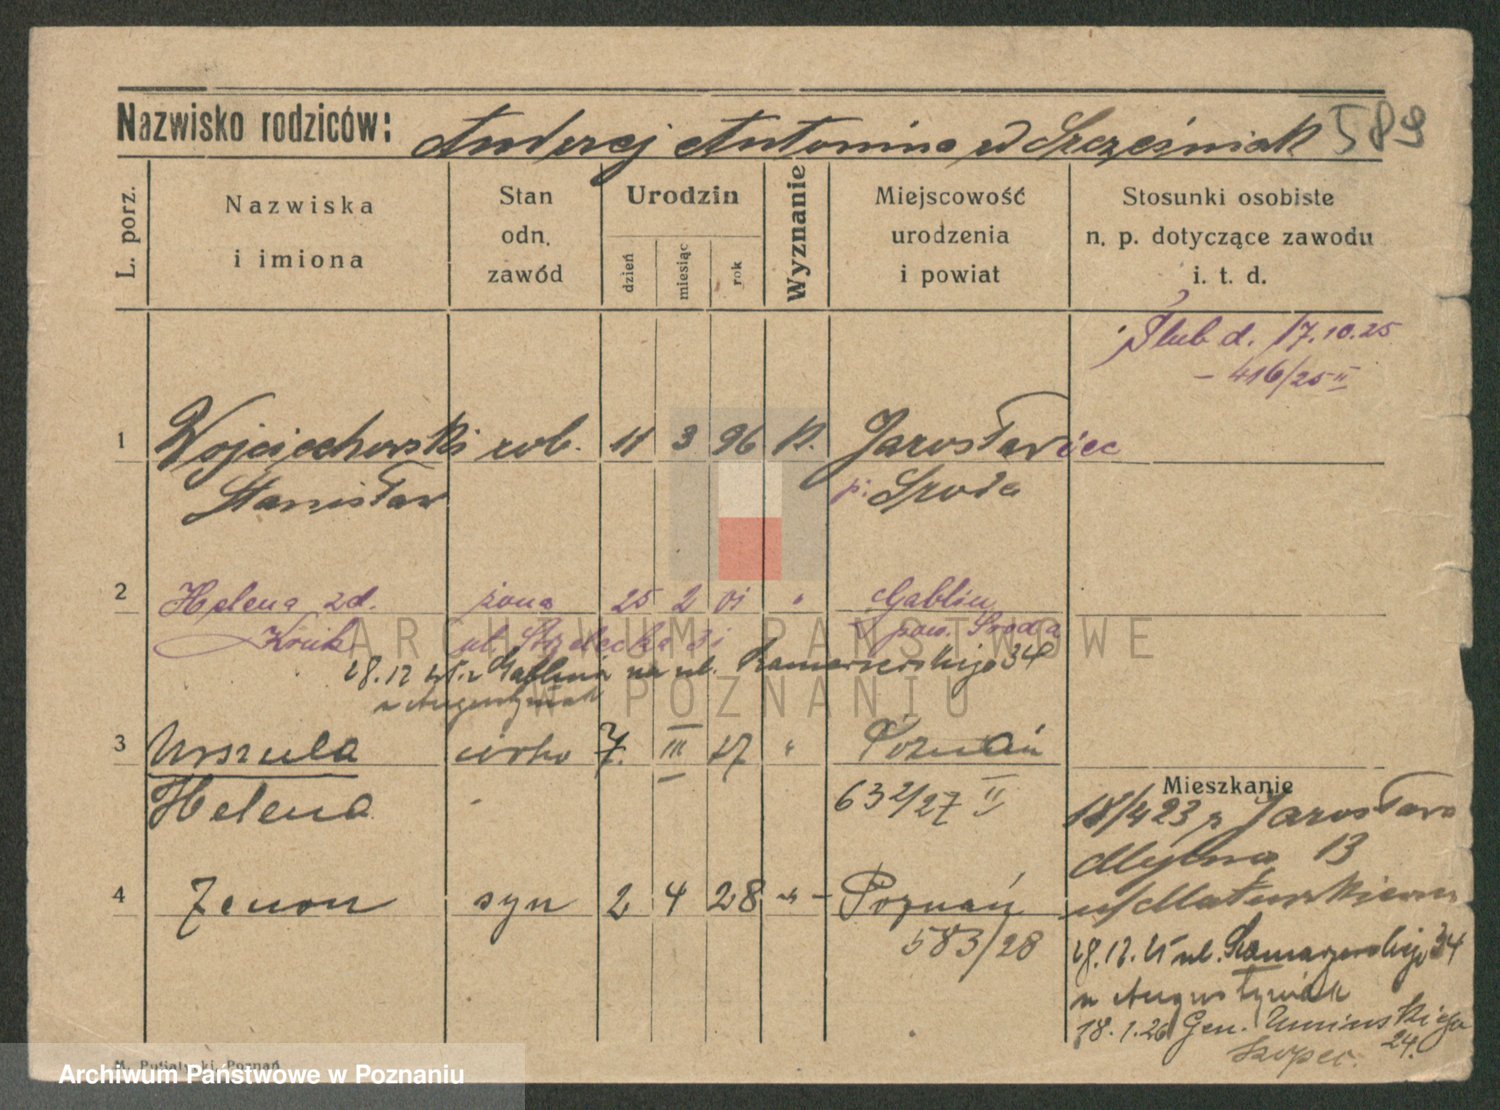 Nazwisko rodziców: Andrzej Antonina z d Szcześniak 589
L. porz.
Nazwiska i imiona
Stan odn. zawód
Urodzin
dzień miesiąc rok
Wyznanie
Miejscowość urodzenia i powiat
Stosunki osobiste n. p. dotyczące zawodu i. t. d.
Ślub d. 17.10.25
- 416/25 II
1 Wojciechowski rob. 11 3 96 k. Jarosławiec
Stanisław p. Środa
2 Helena zd. żona 25 2 01 " Gablin
Kruk ul. Strzelecka 31 pow. Środa
28.12.25 z Gablina na ul. Kamarzewskiego 34
u Augustyniak
3 Urszula córka 7. III 27 " Poznań
Helena 632/27 II
Mieszkanie
18/4 23 z Jarosława
Młyna 13
u Matuszkiewicz
4 Zenon syn 2 4 28 -"- Poznań
583/28
28.12.25 ul. Kamarzewskiego 34
u Augustyniak
18.1.26 Gen. Umińskiego
24.
M. Putiatycki, Poznań
ARCHIWUM PAŃSTWOWE
W POZNANIU
Archiwum Państwowe w Poznaniu